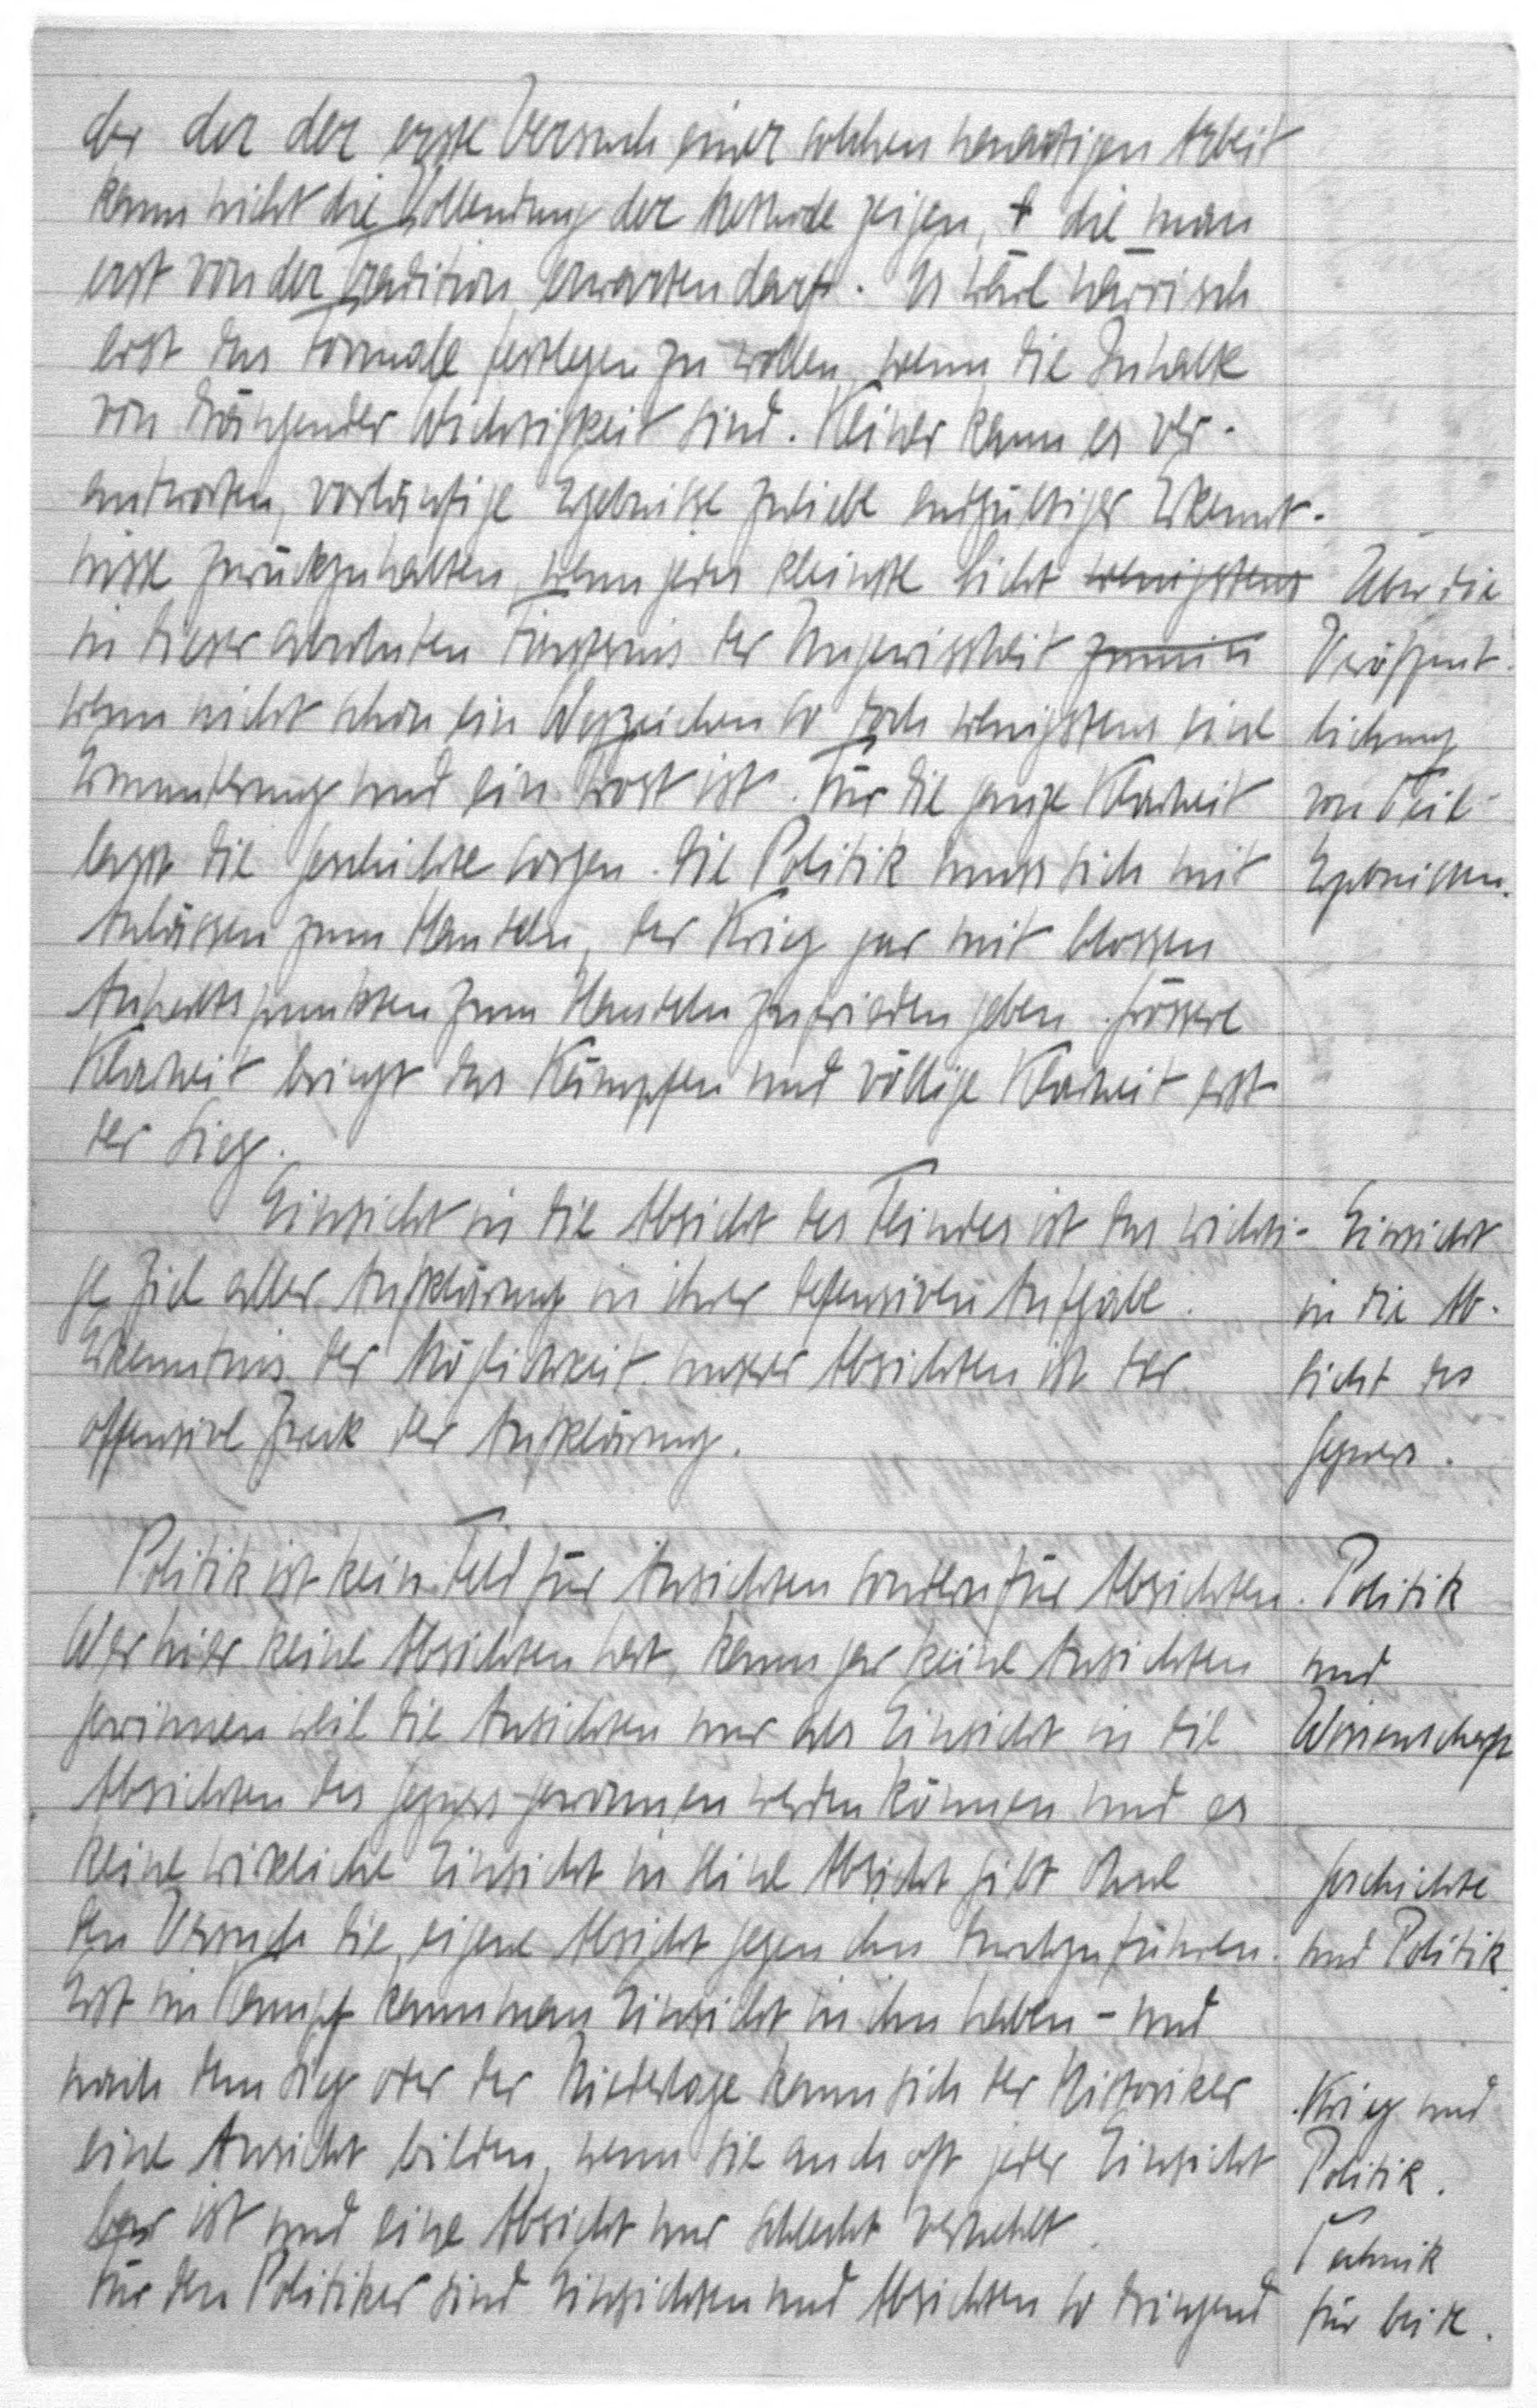 der der der erste Versuch einer solchen neuartigen Arbeit
kann nicht die Vollendung der Methode zeigen, die man
erst von der Tradition erwarten darf. Es wäre närrisch
erst das Formale festlegen zu wollen, wenn die Inhalte
von drängender Wichtigkeit sind. Keiner kann es ver-
antworten, vorläufige Ergebnisse zuliebe endgültiger Erkennt-
nisse zurückzuhalten, wenn jedes kleinste Licht wenigstens
in dieser absoluten Finsternis der Ungewissheit
wenn nicht schon ein Wegzeichen so doch wenigstens eine
Ermunterung und ein Trost ist. Für die ganze Klarheit
lasst die Geschichte sorgen. Die Politik muss sich mit
Anlässen zum Handeln, der Krieg gar mit blossen
Anhaltspunkten zum Handeln zufrieden geben. Grössere
Klarheit bringt das Kämpfen und völlige Klarheit erst
der Sieg.
Über die
Veröffent-
lichung
von Teil-
Ergebnissen.
Einsicht in die Absicht des Feindes ist das wichti-
ge Ziel aller Aufklärung in ihrer defensiven Aufgabe.
Erkenntnis der Möglichkeit unserer Absichten ist der
offensive Zweck der Aufklärung.
Einsicht
in die Ab-
sicht des
Gegners.
Politik ist kein Feld für Ansichten sondern für Absichten.
Wer hier keine Absichten hat, kann gar keine Ansichten
gewinnen weil die Ansichten nur als Einsicht in die
Absichten des Gegners gewonnen werden können und es
keine wirkliche Einsicht in seine Absicht gibt ohne
den Versuch die eigene Absicht gegen ihn durchzuführen.
Erst im Kampf kann man Einsicht in ihn haben - und
nach dem Sieg oder der Niederlage kann sich der Historiker
eine Ansicht bilden, wenn sie auch oft jeder Einsicht
bar ist und eine Absicht nur schlecht verhehlt.
Für den Politiker sind Einsichten und Absichten so dringend
Politik
und
Wissenschaft
Geschichte
und Politik
Krieg und
Politik.
Technik
für beide.